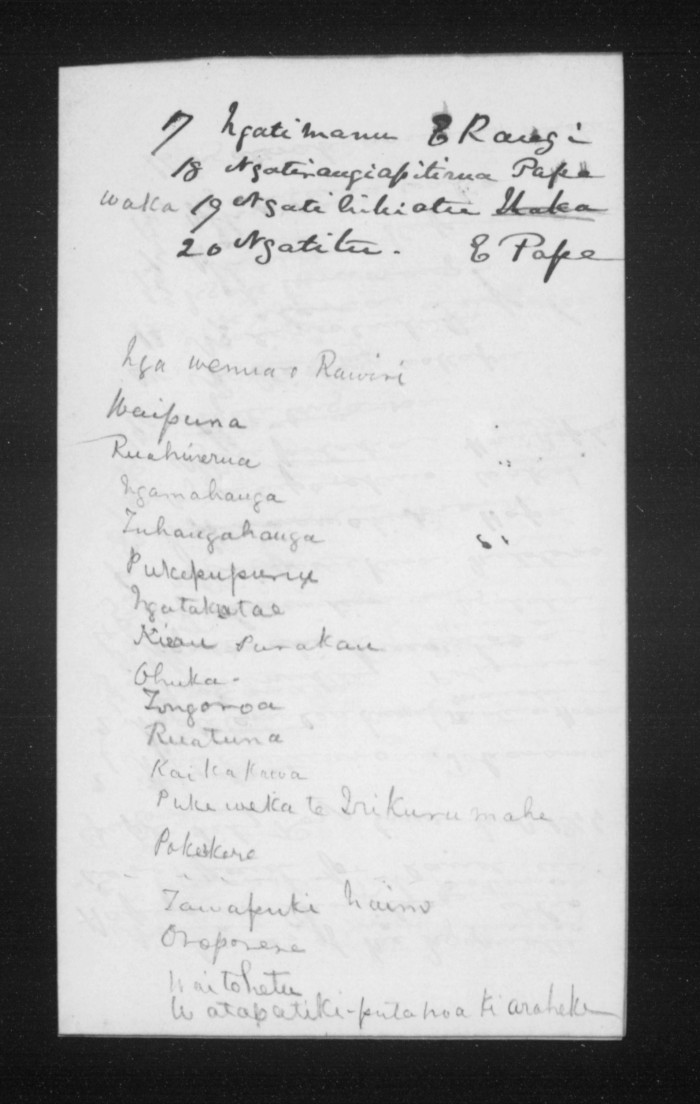 17 Ngatimanu E Rangi
18 Ngatirangiapitirua Pape
waka 19 Ngatihikiatu Waka
20 Ngatitu. E Pape
Nga wenua o Rawiri
Waipuna
Ruahuierua
Ngamahanga
Tuhangahanga
Pukepupuruu
Ngatakatae
purakau
Ohuka-
Tongoroa
Ruatuna
Kaikakawa
Puke weka te Irikurumahe
Pokekere
Tawapuki
Oroporera
Waitohetu
Watapatiki-putahoa ki araheke